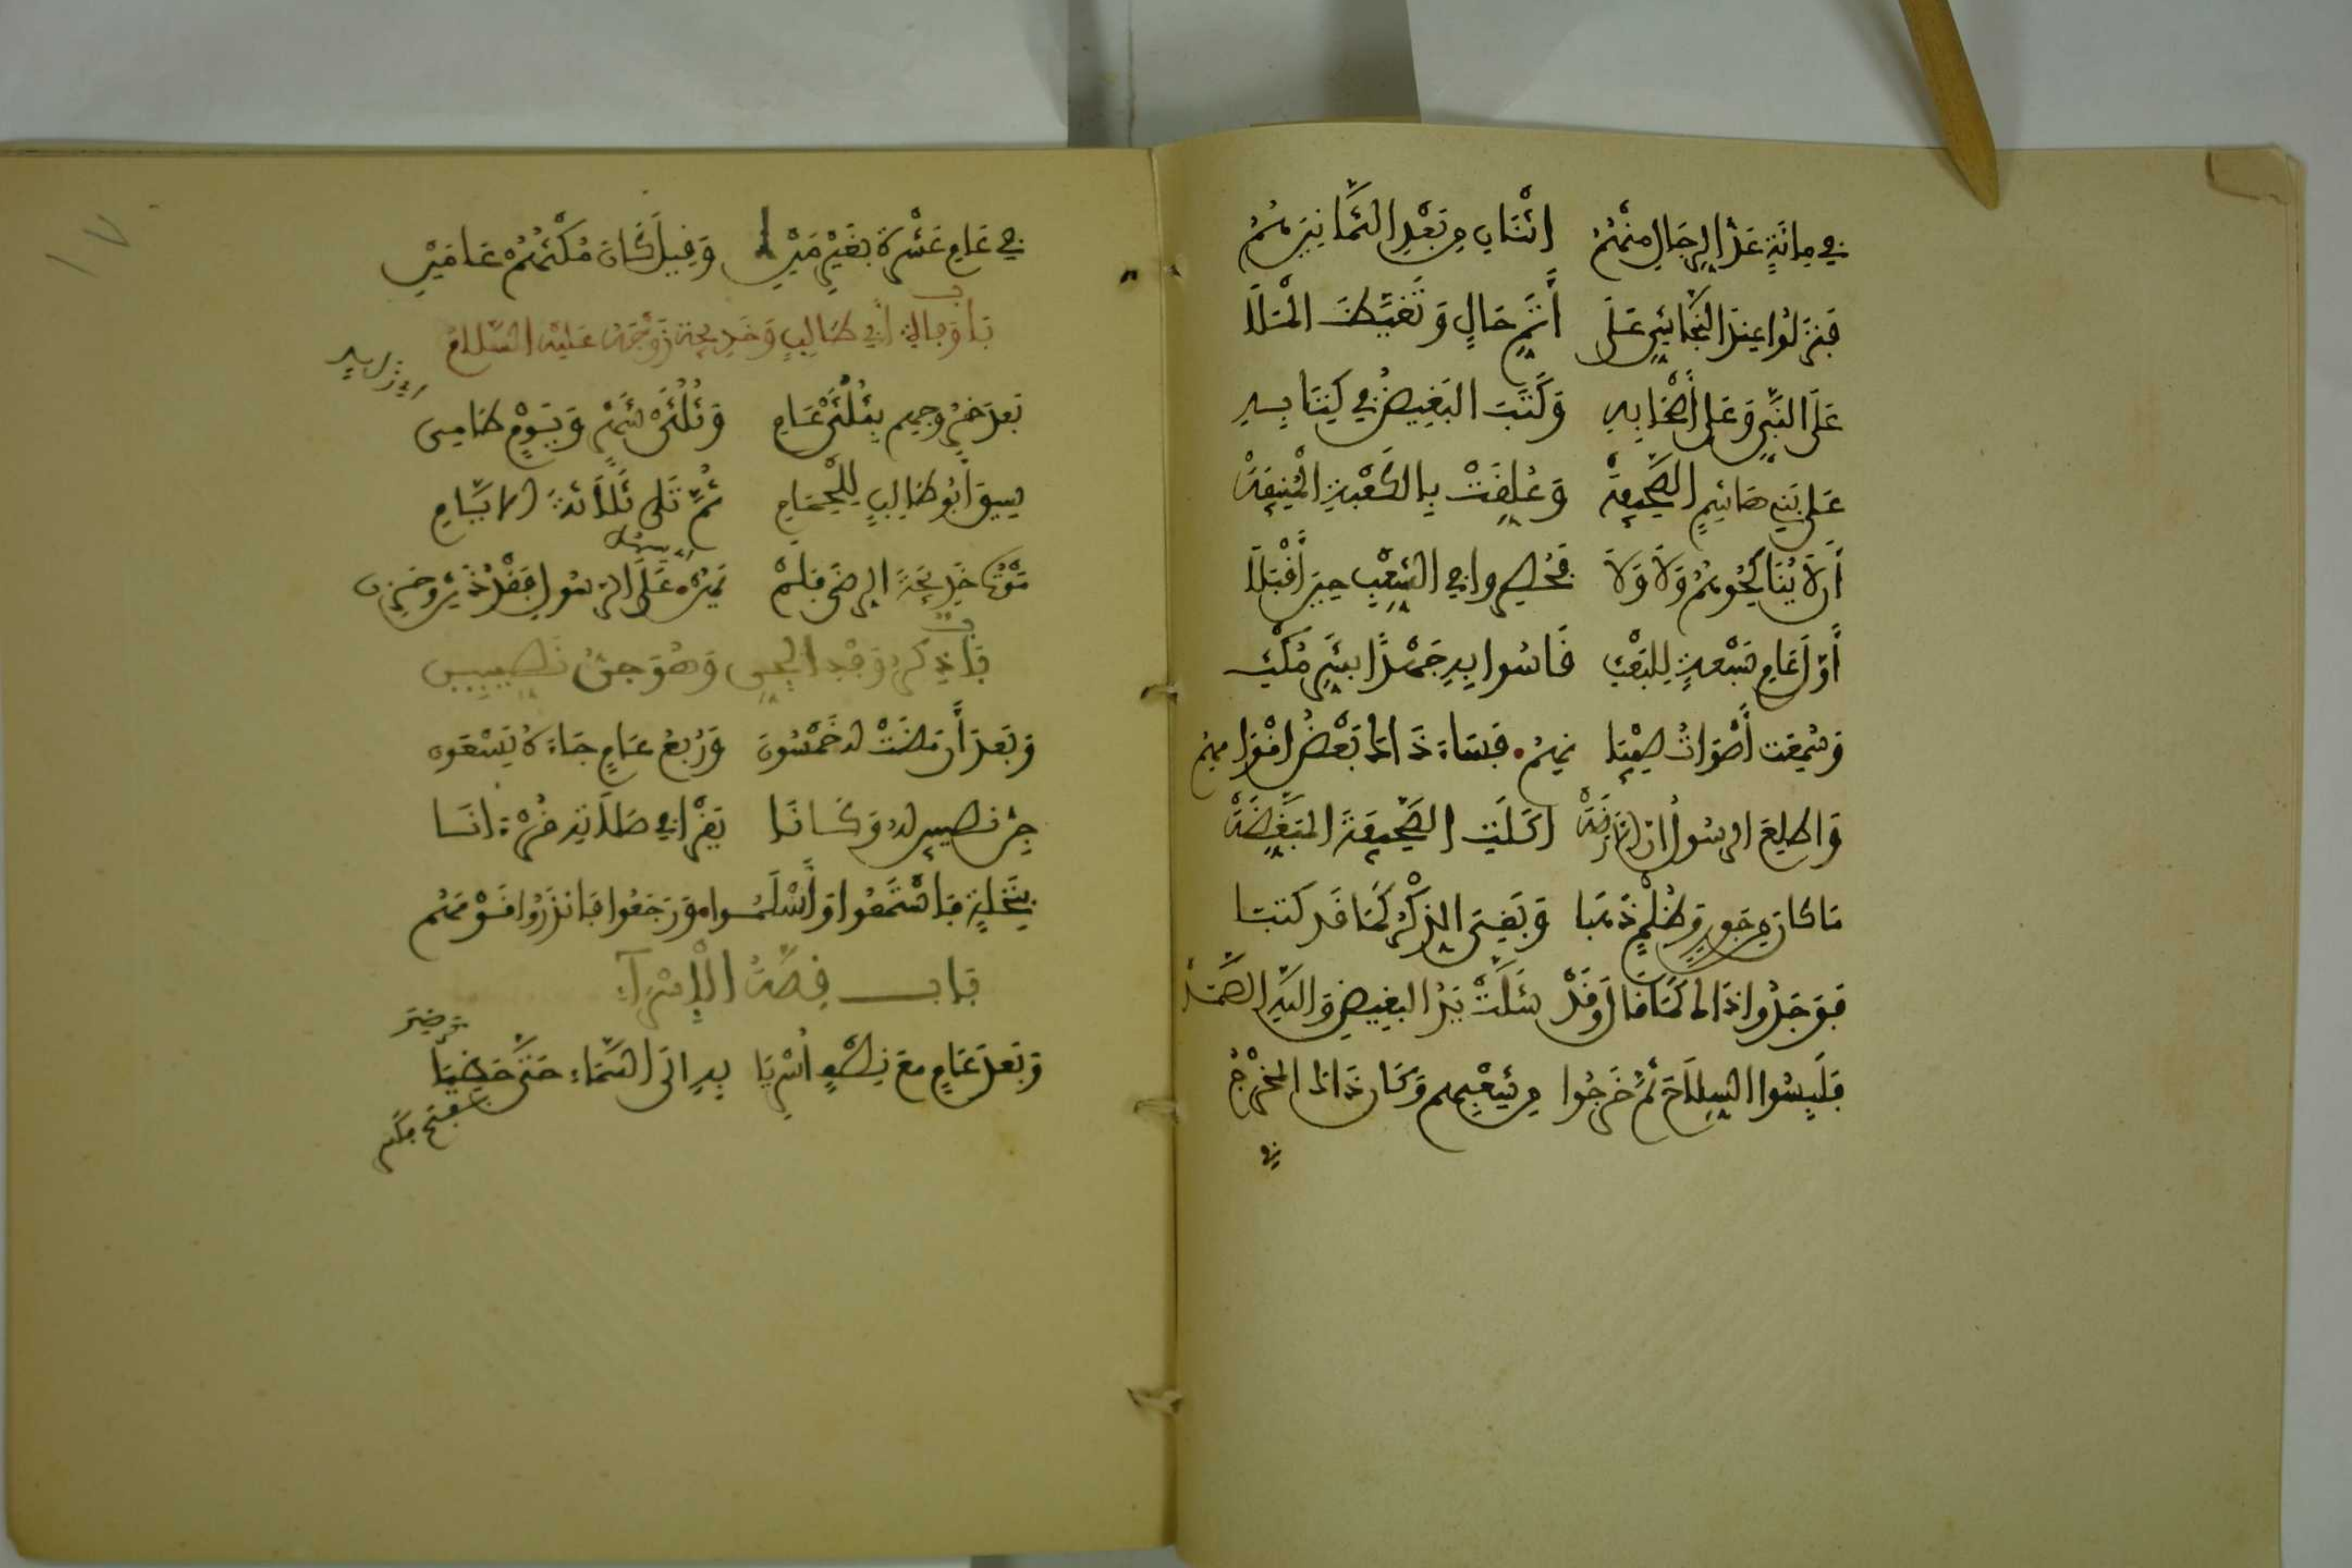 في مائة عد الرجال منهم اثنان من بعد الثمانين هم
فنزلوا عند النجاشي على أتم حال وتغيظ الملا
على النبي وعلى أصحابه وكتب البغيض في كتابه
على بني هاشم الصحيفة وعلقت بالكعبة المنيفة
أن لا يناكحوهم ولا ولا فحصروا في الشعب حين أقبلا
أول عام سبعة للبعث قاسوا به جهدا بشر مكث
وسمعت أصوات صبيا نهم فساء ذاك بعض اقوا مهم
واطلع الرسول ان الارضة اكلت الصحيفة المبغضة
ما كان من جور وظلم ذهبا وبقي الذكر كما قد كتبا
فوجدوا ذاك كما قال وقد شلت يد البغيض والله الصمد
فلبسوا السلاح ثم خرجوا من شعبهم وكان ذاك المخرج
في
١٧
في عام عشرة بغير مين وقيل كان مكثهم عامين
باب وفاة أبي طالب وخديجة زوجه عليه السلام
بعد خروجهم بثلثي عام وثلثي شهر ويوم طامي
سيق أبو طالب للحمام ثم تلى ثلاثة الايام
موت خديجة الرضى فلم يهن على الرسول فقد ذين وحزن
باب ذكر وفد الجن وهو جن نصيبين
وبعد أن مضت له خمسون وربع عام جاءه يسعون
جن نصيبين له وكانا يقرأ في صلاته قرءانا
بنخلة فاستمعوا وأسلموا ورجعوا فانذروا قومهم
باب قصة الإسراء
وبعد عام مع نصف أسريا به الى السماء حتى حظيا
بفتح مكسر